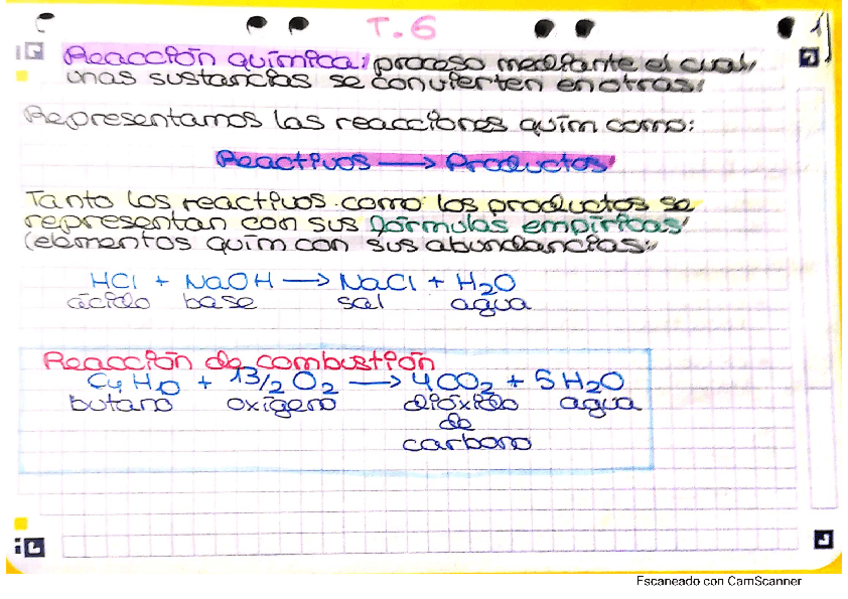 T.6
1
Reacción química: proceso mediante el cual
unas sustancias se convierten en otras.
Representamos las reacciones quím como:
Reactivos → Productos
Tanto los reactivos como los productos se
representan con sus fórmulas empíricas
(elementos quím con sus abundancias.
HCl + NaOH → NaCl + H₂O
ácido base sal agua
Reacción de combustión
C₄H₁₀ + 13/2 O₂ → 4CO₂ + 5H₂O
butano oxígeno dióxido agua
de
carbono
Escaneado con CamScanner